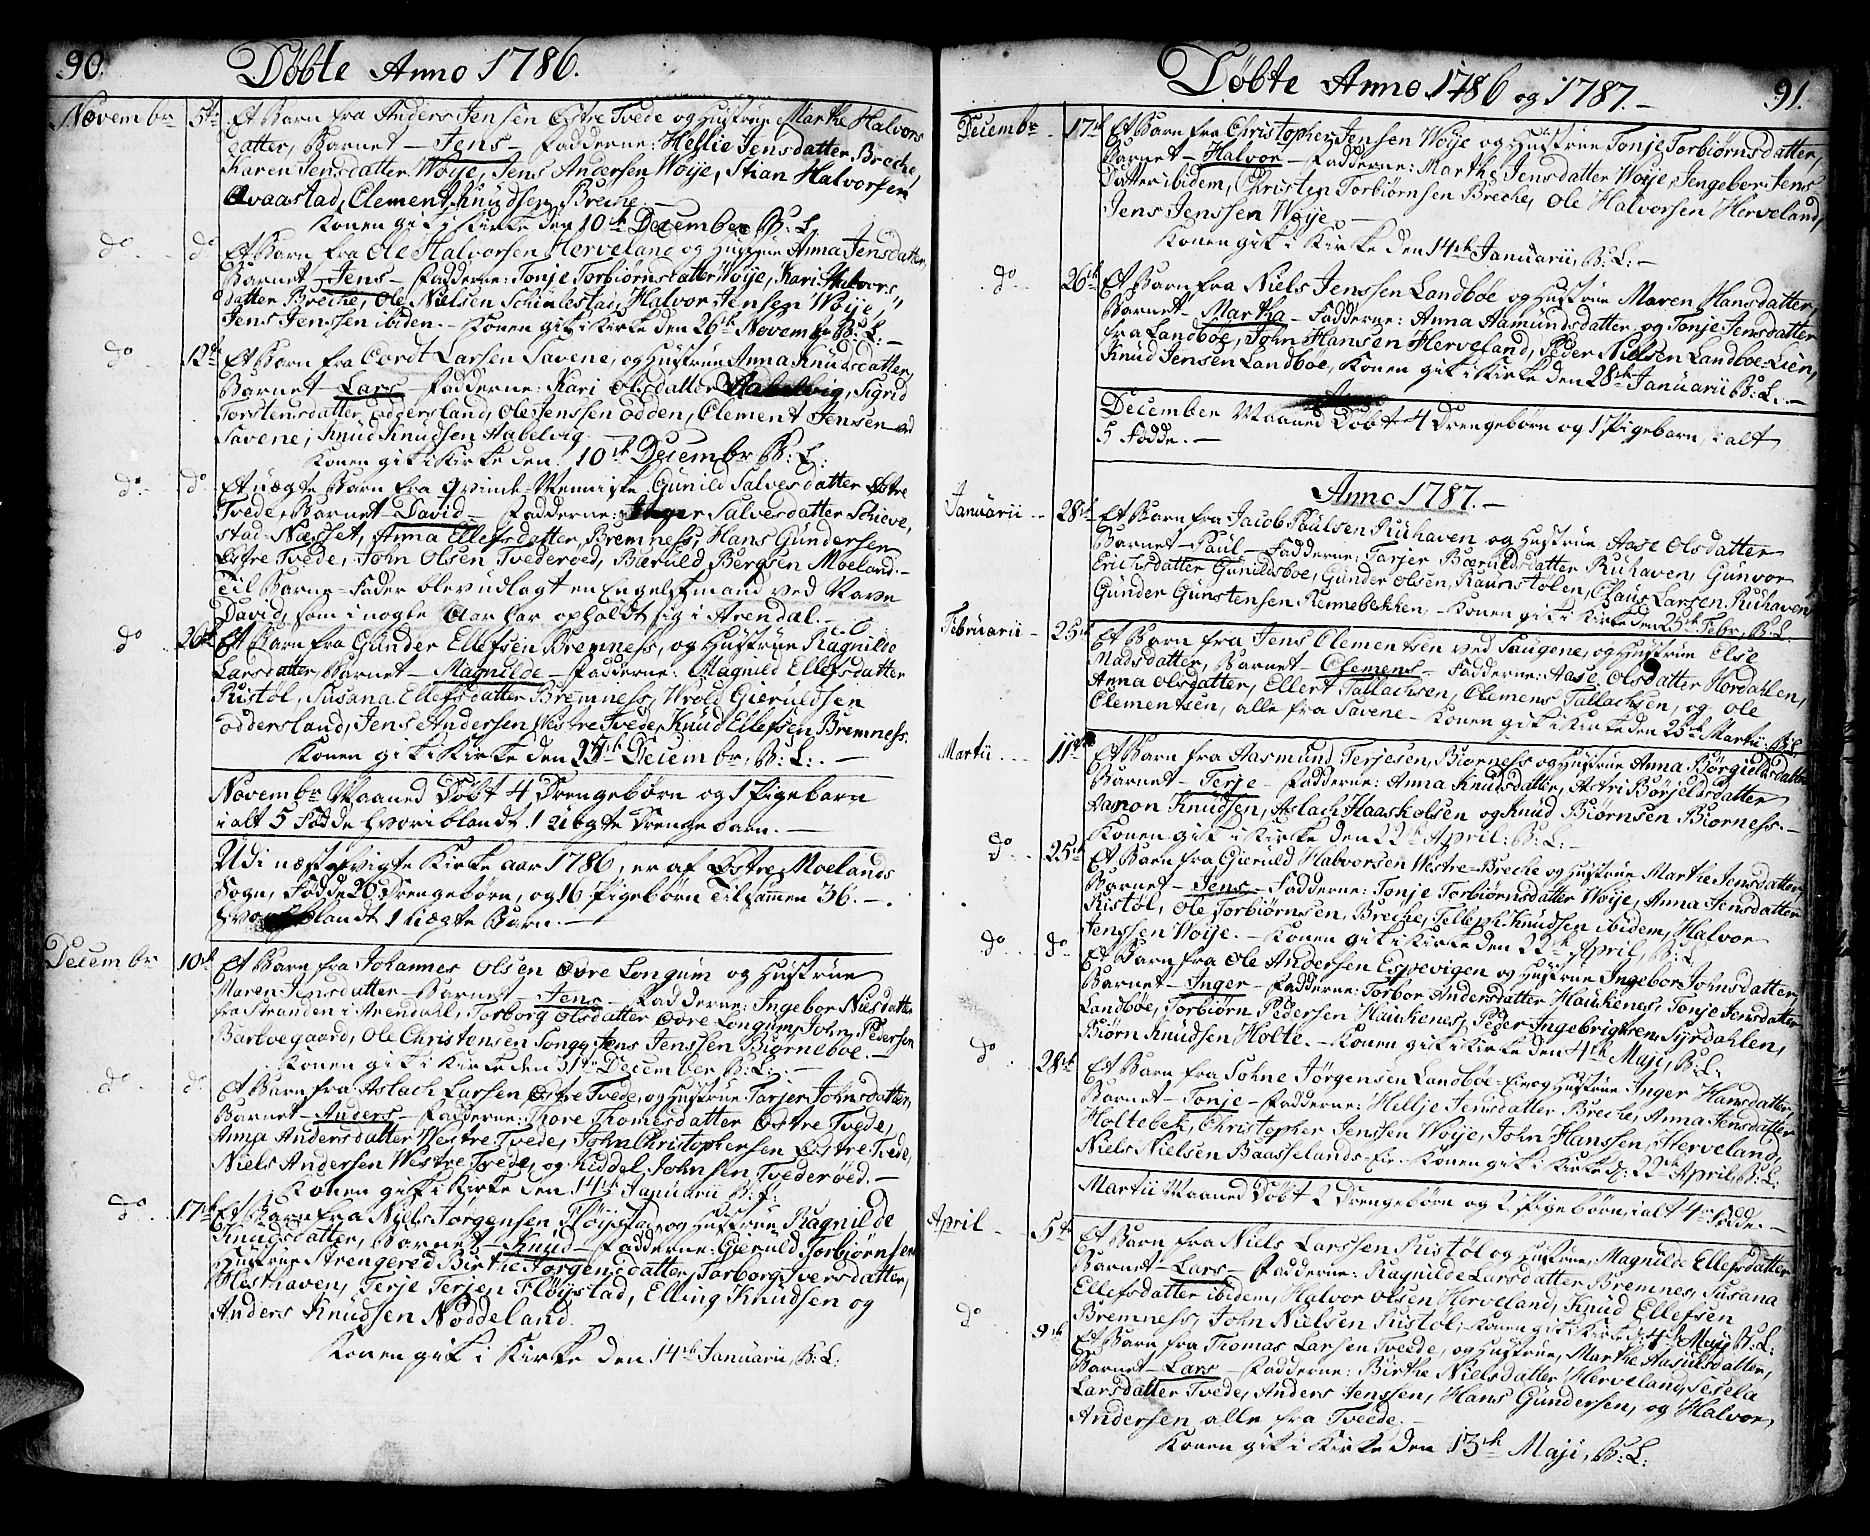 90.
Døbte Anno 1786.
Novembr 5te Et Barn fra Anders Jensen Østre Tvede og Hustrue Marthe Halvors
datter, Barnet - Jens - Fadderne: Hellie Jensdatter Breche,
Karen Jensdatter Woije, Jens Andersen Woije, Stian Halvorsen
Qvaastad, Clement Knudsen Breche. -
Konen gik i Kirke den 10de December B: L:
do do Et Barn fra Ole Halvorsen Herveland og Hustrue Anna Jensdatter,
Barnet - Jens - Fadderne: Tonje Torbiørnsdatter Woije, Kari Halvors
datter Breche, Ole Nielsen Schimlestad, Halvor Jensen Woije,
Jens Jenssen ibidem. - Konen gik i Kirke den 26de Novembr B: L: -
do 12te Et Barn fra Cordt Larsen Savene, og Hustrue Anna Knudsdatter,
Barnet - Lars - Fadderne: Kari Olsdatter Habelvig, Sigrid
Torstensdatter Oddersland, Ole Jenssen Odden, Clement Jensen ved
Savene, Knud Knudsen Habelvig. -
Konen gik i Kirke den 10de Decembr B: L:
do do Et uægte Barn fra Qvinde-Menniske Gunild Salvesdatter Østre
Tvede, Barnet - David - Fadderne: Inger Salvesdatter Schieve,
stad-Næsset, Anna Ellefsdatter Bremness, Hans Gundersen
Østre Tvede, John Olsen Tvederøed, Baruld Bergsen Moeland. -
Til Barne-Fader blev udlagt en Engelskmand ved Navn
David, som i nogle Aar har opholdt sig i Arendal. -
do 26de Et Barn fra Gunder Ellefsen Bremness, og Hustrue Ragnilde
Larsdatter, Barnet - Magnilde - Fadderne: Magnild Ellefsdatter
Rustøl, Susana Ellefsdatter Bremness, Wrold Gieruldsen
Oddersland, Jens Andersen Westre Tvede, Knud Ellefsen Bremness.
Konen gik i Kirke den 25de Decembr, B: L: -
Novembr Maaned Døbt 4 Drengebørn og 1 Pigebarn
i alt 5 Fødde hvoriblandt 1 uægte Drengebarn. -
Udi næstafvigte Kirke aar 1786, er af Østre Moelands
Sogn, Fødde 20 Drengebørn, og 16 Pigebørn Tilsammen 36. -
hvoriblandt 1 uægte Barn. -
Decembr 10de Et Barn fra Johannes Olsen Øvre Longum og Hustrue
Maren Jensdatter - Barnet - Jens - Fadderne: Ingebor Nielsdatter
fra Stranden i Arendahl, Torborg Olsdatter Øvre Longum, John Pedersen
Bartvegaard, Ole Christensen Songe, Jens Jenssen Biørneboe. -
Konen gik i Kirke den 31te December B: L: -
do do Et Barn fra Aslach Larsen Østre Tvede, og Hustrue Tarjer Johnsdatter,
Barnet - Anders - Fadderne: Thore Thomesdatter Østre Tvede,
Anna Andersdatter Westre Tvede, John Christophersen Østre Tvede,
Niels Andersen Westre Tvede, og Riddel Johnsen Tvederøed. -
Konen gik i Kirke den 14de Januarii B: L:
do 17de Et Barn fra Niels Jørgensen Fløystad, og Hustrue Ragnilde
Knudsdatter, Barnet - Knud - Fadderne: Gieruld Torbiørnsen
Hustrue Strengered Birthe Jørgensdatter, Torborg Iversdatter,
Hesthaven, Terje Terjesen Fløystad, Elling Knudsen og
Anders Knudsen Noddeland.
Konen gik i Kirke den 14de Januarii, B: L:
91.
Døbte Anno 1786 og 1787. -
Decembr 17de Et Barn fra Christopher Jensen Woije og Hustrue Tonje Torbiørnsdatter,
Barnet - Halvor - Fadderne: Marthe Jensdatter Woije, Jengebor Jens
datter ibidem, Christen Torbiørnsen Breche, Ole Halvorsen Herveland,
Jens Jenssen Woije. -
Konen gik i Kirke den 14de Januarii, B: L: -
do 26de Et Barn fra Niels Jenssen Landbøe og Hustrue Maren Hansdatter,
Barnet - Martha - Fadderne: Anna Aamundsdatter, og Tonje Jensdatter
fra Landbøe, John Hansen Herveland, Peder Nielsen Landbøe-Eien,
Knud Jensen Landbøe, Konen gik i Kirke den 28de Januarii B: L: -
December Maaned Døbt 4 Drengebørn og 1 Pigebarn, i alt
5 Fødde. -
Anno 1787. -
Januarii 28de Et Barn fra Jacob Paulsen Ruhaven og Hustrue Aase Olsdatter
Barnet - Paul - Fadderne: Tarjer Bæruldsdatter Ruhaven, Gunvor
Erichsdatter Gunildsboe, Gunder Olsen, Ravnstølen, Claus Larsen, Ruhaven,
Gunder Gunstensen Rennebekken. - Konen gik i Kirke den 25de Febr, B: L:
Februarii 25de Et Barn fra Jens Clementsen ved Saugene, og Hustrue Else
Madsdatter, Barnet - Clemens - Fadderne: Aase Olsdatter Nordahlen,
Anna Olsdatter, Ellert Tallachsen, Clemens Tallachsen, og Ole
Clementsen, alle fra Savene - Konen gik i Kirke den 25de Martii: B: L:
Martii 11te Et Barn fra Aasmund Terjesen, Biørness og Hustrue Anna Børgieldsdatter
Barnet - Terje - Fadderne: Anna Knudsdatter, Astri Børjeldsdatter
Aanon Knudsen, Aslach Haaskolsen og Knud Biørnsen Biørness. -
Konen gik i Kirke den 22de April: B: L: -
do 25de Et Barn fra Gieruld Halvorsen Westre-Breche og Hustrue Marthe Jensdatter,
Barnet - Jens - Fadderne: Tonje Torbiørnsdatter Woije, Anna Jensdatter
Rustøl, Ole Torbiørnsen, Breche, Telleph Knudsen ibidem, Halvor
Jenssen Woije. - Konen gik i Kirke den 22de April, B: L:
do do Et Barn fra Ole Andersen Espevigen og Hustrue Ingebor Johnsdatter,
Barnet - Inger - Fadderne: Torbor Andersdatter Haukenes, Tonje Jensdatter
Landbøe, Torbiørn Pedersen Haukenes, Peder Ingebrigtsen Syrdahlen,
Biørn Knudsen Holte. - Konen gik i Kirke den 4de Maji, B: L:
do 28de Et Barn fra Sohne Jørgensen Landbøe-Eie og Hustrue Inger Hansdatter,
Barnet - Tonje - Fadderne: Hellje Jensdatter Breche, Anna Jensdatter
Holtebek, Christopher Jenssen Woije, John Hanssen, Herveland,
Niels Nielsen Baasselands-Eie. Konen gik i Kirke d: 22de April, B: L:
Martii Maaned Døbt 2 Drengebørn og 2 Pigebørn, i alt 4re Fødde. -
April 5te Et Barn fra Niels Larssen Rustøl og Hustrue, Magnilde Ellefsdatter
Barnet - Lars - Fadderne: Ragnilde Larsdatter Bremnes, Susana
Ellefsdatter ibidem, Halvor Olsen Herveland, Knud Ellefsen
Bremness, John Nielsen Rustøl, Konen gik i Kirke d: 4de Maji B: L:
do 9de Et Barn fra Thomas Larsen Tvede, og Hustrue, Marthe Aasulsdatter,
Barnet - Lars - Fadderne: Birthe Nielsdatter Herveland, Sesela
Larsdatter Tvede, Anders Jenssen, Hans Gundersen, og Halvor
Andersen alle fra Tveede. -
Konen gik i Kirke den 13de Maji, B: L: